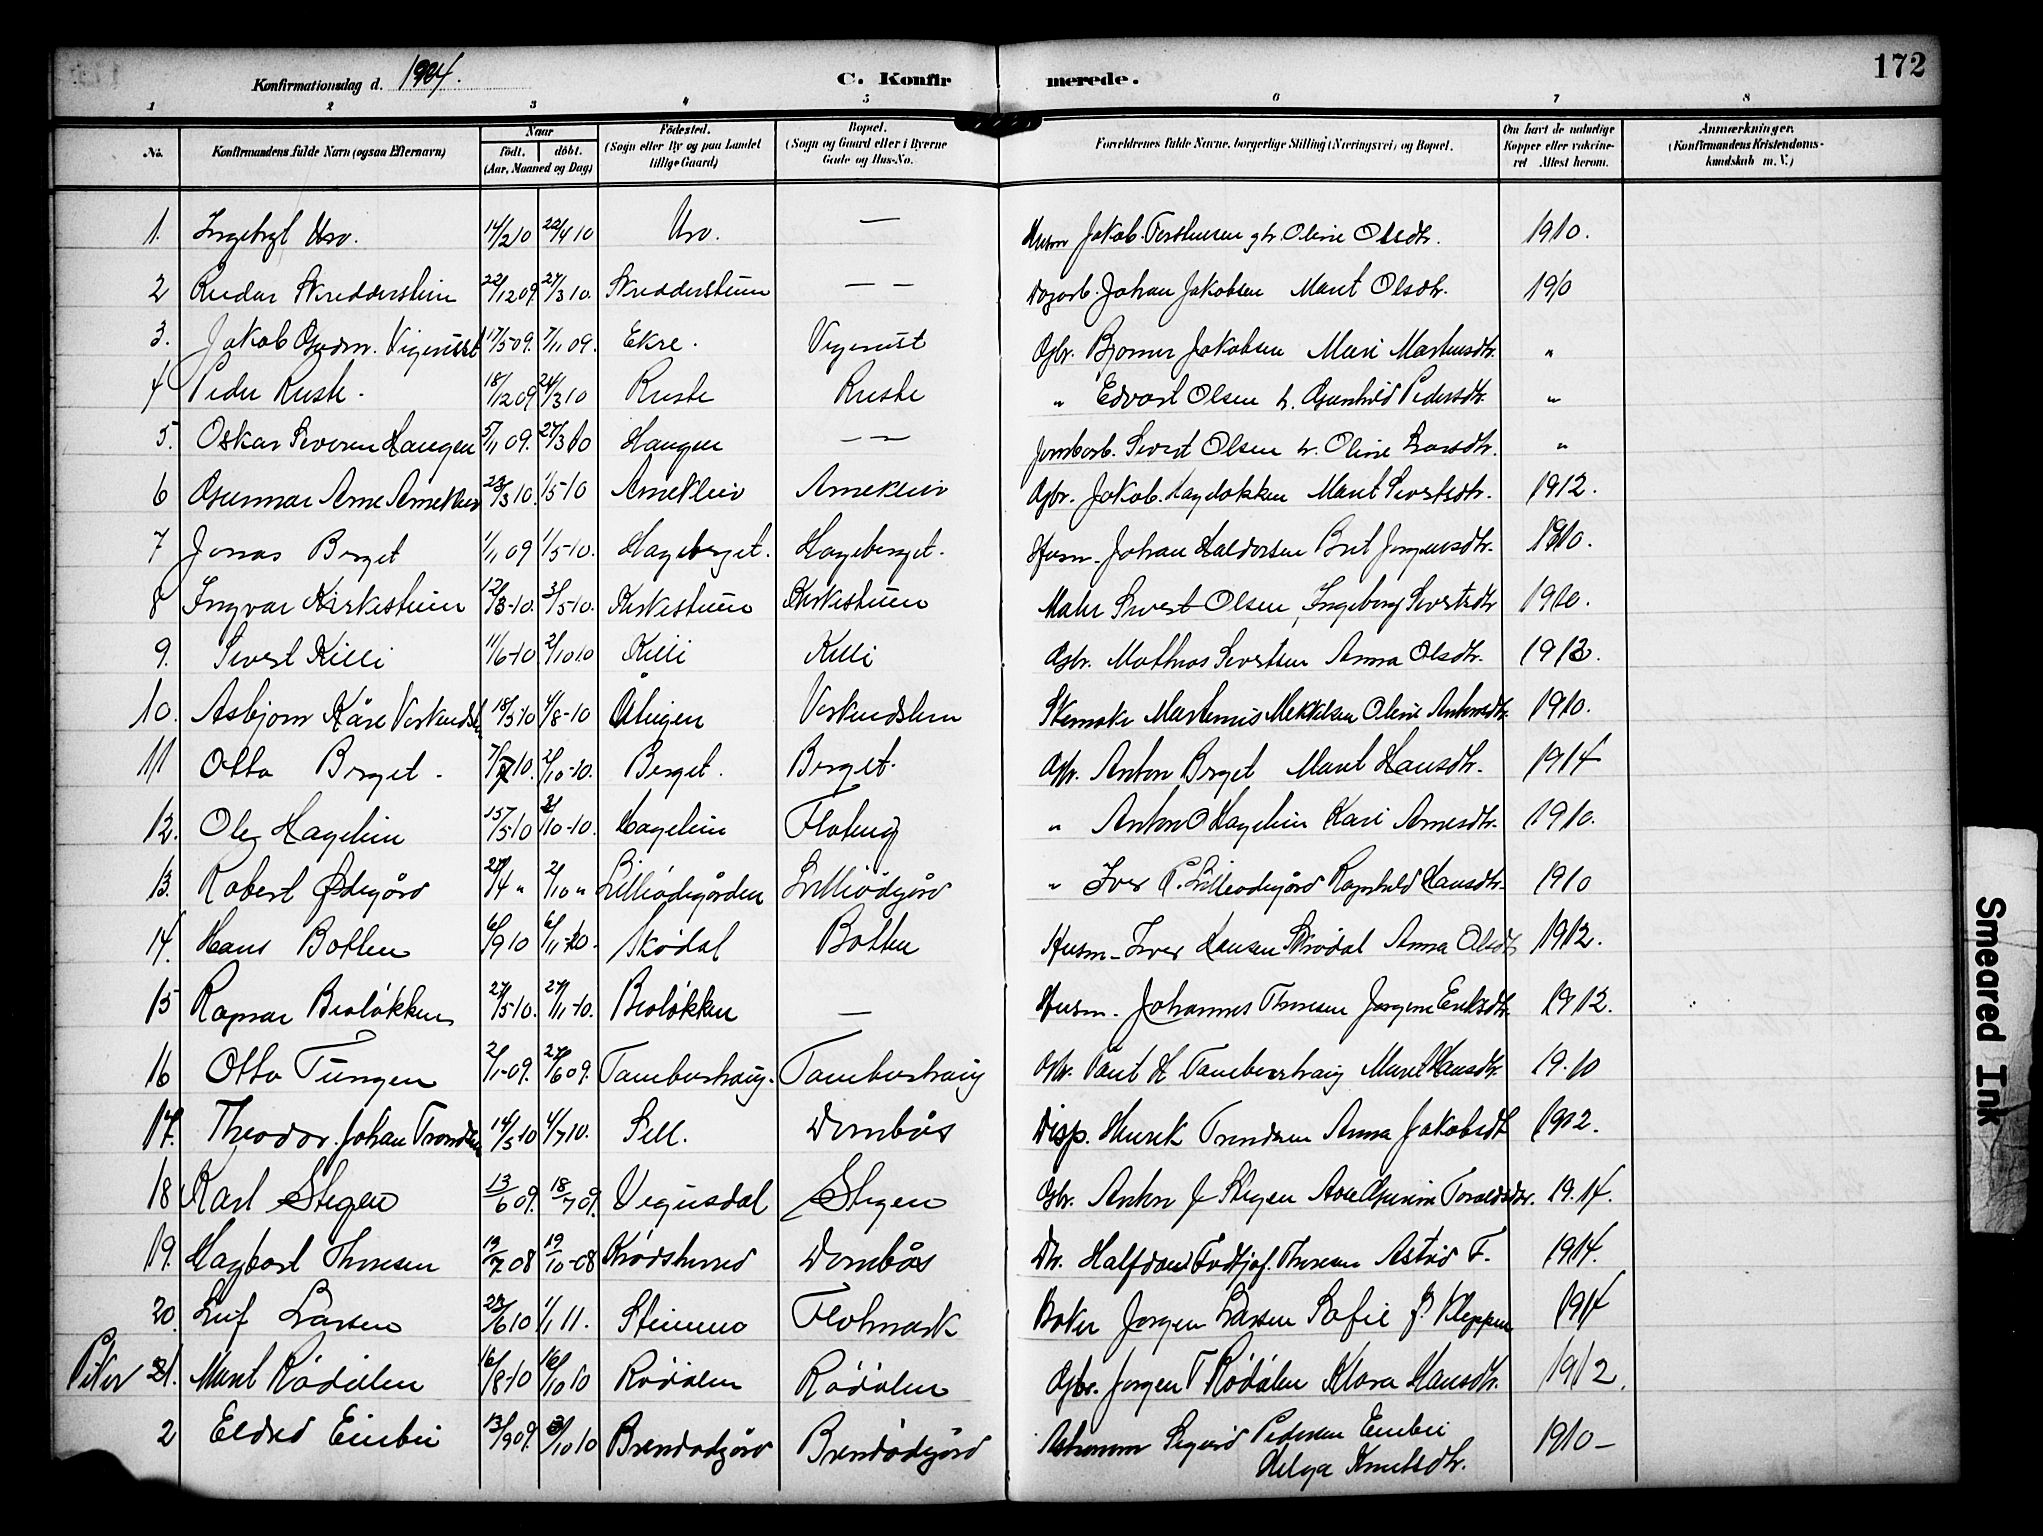 172
Konfirmationsdag d. 1924.
C. Konfir merede.
1 2 3 4 5 6 7 8
No. Konfirmandens fulde Navn (ogsaa Efternavn) Naar født. døbt. (Aar, Maaned og Dag) Fødested. (Sogn eller By og paa Landet tillige Gaard) Bopæl. (Sogn og Gaard eller i Byerne Gade og Hus-No. Forældrenes fulde Navne, borgerlige Stilling (Næringsvei) og Bopæl. Om havt de naturlige Kopper eller vakcineret Attest herom. Anmærkninger. (Konfirmandens Kristendomskundskab m. V.)
1. Uro. 14/2 10 22/4 10 Uro. — Husm Jakob Oline Olsdtr. 1910.
2 Reidar Skredderstuen 22/12 09. 27/3 10. Skredderstuen — — Dagarb. Johan Jakobsen Marit Olsdtr. 1910
3. Jakob Gudm. Vigerust 17/5 09. 7/11 09. Ekre. Vigerust Gbr. Bjørner Jakobsen Mari Mathisdtr. "
4 Peder Ruste. 18/12 09 24/3 10 Ruste Ruste " Edvart Olsen h. Gunhild Pedersdtr. "
5. Oskar Severin Haugen 5/11 09. 27/3 10 Haugen — — Jernbarb. Sivert Olsen h. Oline Larsdtr. "
6 Gunnar Arne Arneklev 23/3 10. 1/5 10 Arneklev Arneklev Gbr. Jakob Marit Sivertsdtr. 1912.
7 Jonas Berget 1/11 09 1/5-10. Hageberget. Hageberget. Husm. Johan Haldorsen Brit Jørgensdtr. 1910.
8 Ingvar Kirkestuen 12/3-10. 3/5-10. Kirkestuen Kirkestuen Maler Sivert Olsen, Ingeborg Sivertsdtr 1910.
9. Sivert Killi 11/6-10 2/10 10 Killi Killi Gbr. Mathias Sivertsen Anna Olsdtr. 1913.
10. Asbjørn Kåre 18/5 10 4/8-10 Skomaker Martinus Mikkelsen Oline Antonsdtr. 1910.
11 Otto Berget. 7/7 10. 2/10-10. Berget. Berget. Gbr. Anton Berget Marit Hansdtr. 1914
12. Ole Hagelien 15/5 10 2/10-10. Hagelien " Anton O Hagelien Kari Arnesdtr. 1910.
13. Robert Ødegård 27/4 " 2/10 " Lilleødegården Lilleødegård " Iver P. Lilleødegård Ragnhild Hansdtr. 1910
14. Hans Botten 6/9 10 6/11-10. Skødal Botten Husm. Iver Hansen Skrødal Anna Olsdtr 1912.
15 Ragnar Bioløkken 27/5-10. 27/11-10. Bioløkken — Husm. Johannes Thoresen Jørgine Eriksdtr. 1912.
16 Otto Tungen 2/1-09. 27/6 09. Tamburhaug. Tamburhaug Gbr. Paul H Tamburhaug Marit Hansdtr. 19.10
17. Theodor Johan Trondsen 14/5 10 4/7 10. Sell. Dombås Disp. Henrik Trondsen Anna Jakobsdt 1912.
18 Karl Stegen 13/6 09. 18/7 09. Vegusdal Stegen Gbr. Anton J Stegen 19.14.
19. Hagbart Thoresen 19/7 08 19/10-08 Krødsherred Dombås Dr. Halfdan Fridtjof Thoresen Astrid F. 1914.
20. Leif Larsen 23/6 10 1/1 11. Flatmark Baker Jørgen Larsen Sofie J. Kleppen 1914
Piker 21. Marit Rødølen 16/8-10 16/10 10 Rødølen Rødølen Gbr. Jørgen T Rødølen Klara Hansdtr. 1912.
2 Eldrid Einbu 13/9 09. 3/10 10 Brendødegård Brendødegård Sigurd Pedersen Einbu
Helga Knutsdtr. 1910 —
Smeared Ink